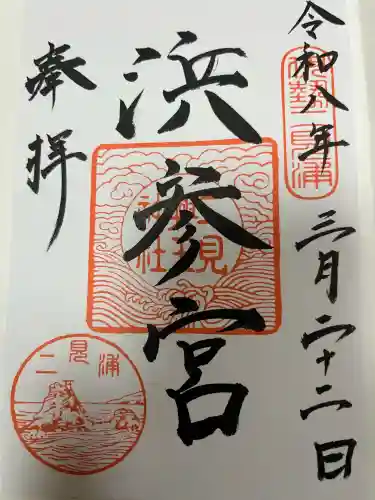 令和八年
三月二十二日
伊勢二見浦
浜参宮
二見興玉神社
奉拝
二見浦